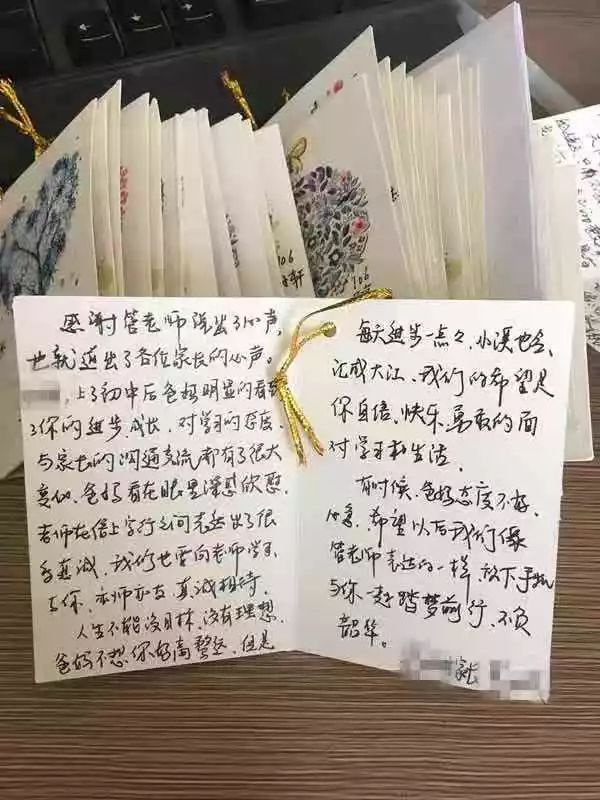 106
106
轩
感谢管老师说出了心声,
也就道出了各位家长的心声。
,上了初中后爸妈明显的看到
了你的进步,成长,对学习的态度,
与家长的沟通交流都有了很大
变化,爸妈看在眼里深感欣慰,
老师在信上字行之间表达出了很
多真诚,我们也要向老师学习
与你,亦师亦友,真诚相待,
人生不能没目标,没有理想,
爸妈不想你好高骛远,但是
每天进步一点々,小溪也会
汇成大江,我们的希望是
你自信,快乐,勇敢的面
对学习和生活。
有时候,爸妈态度不好,
希望以后我们像
管老师表达的一样,放下手机
与你一起踏梦前行,不负
韶华。
家长